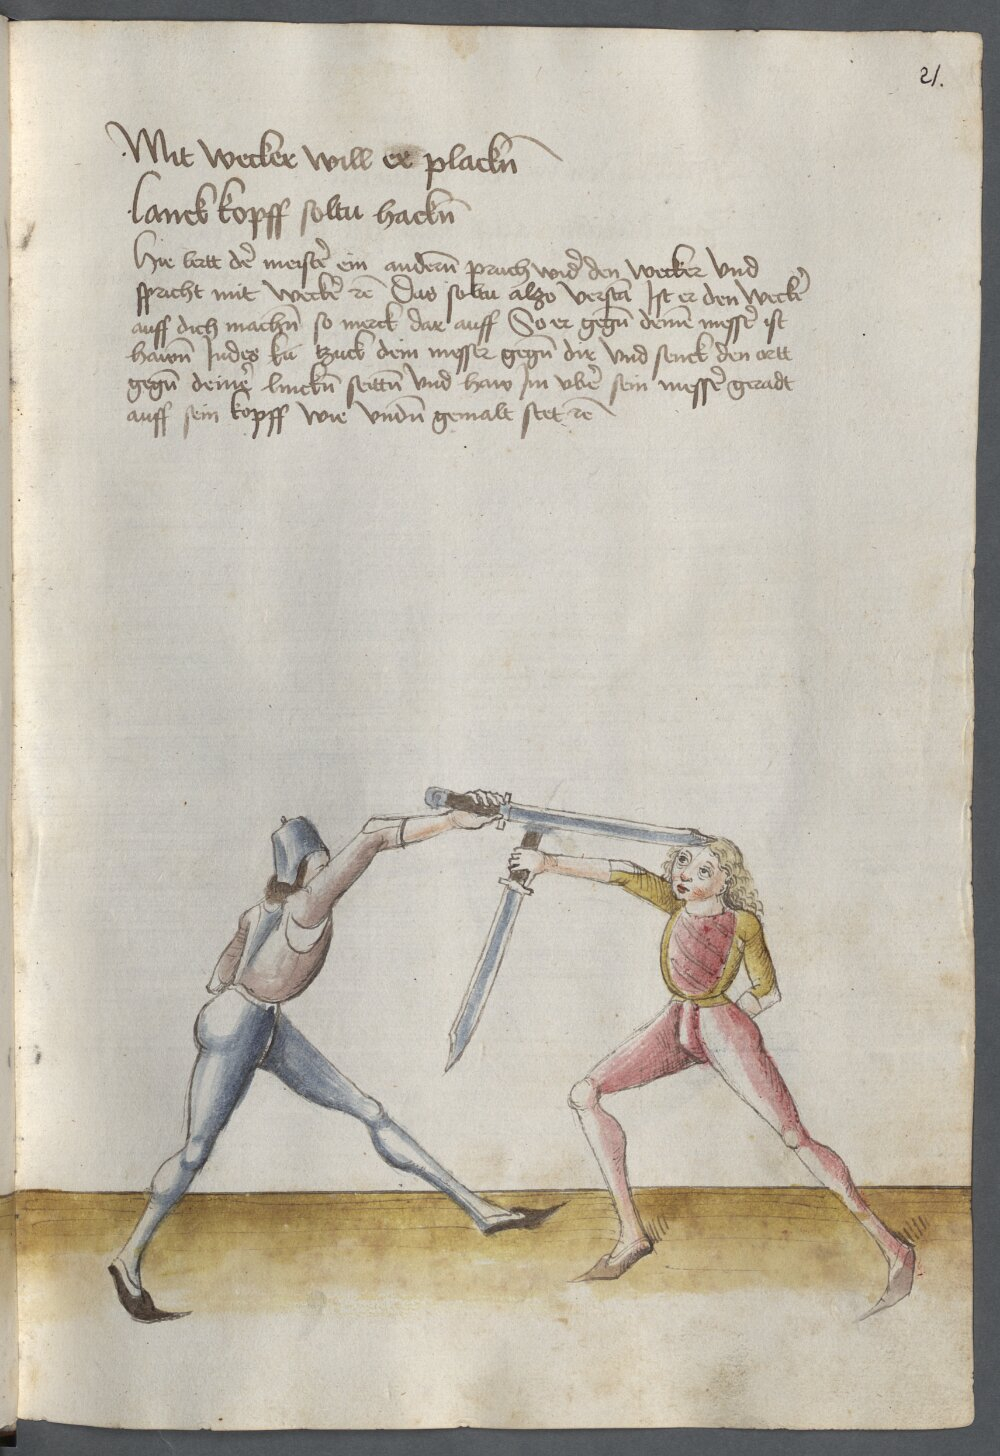 21.
Mit wecker will er plackn̄
lanck kopff soltu hackn̄
Hie lertt der̄ meister̄ ein andern̄ pruch wider̄ den wecker vnd
spricht mit wecker̄ ꝛc̄ Das soltu alzo verstan̄ Ist er den wecker̄
auff dich machn̄ so merck dar auff So er gegn̄ deinē messer̄ ist
hawn̄ Indes zuck dein messer gegn̄ dir vnd senck den ortt
gegn̄ deiner̄ linckn̄ seittn̄ vnd haw Im vber̄ sein messer̄ geradt
auff sein kopff wie vndn̄ gemalt stet ꝛc̄